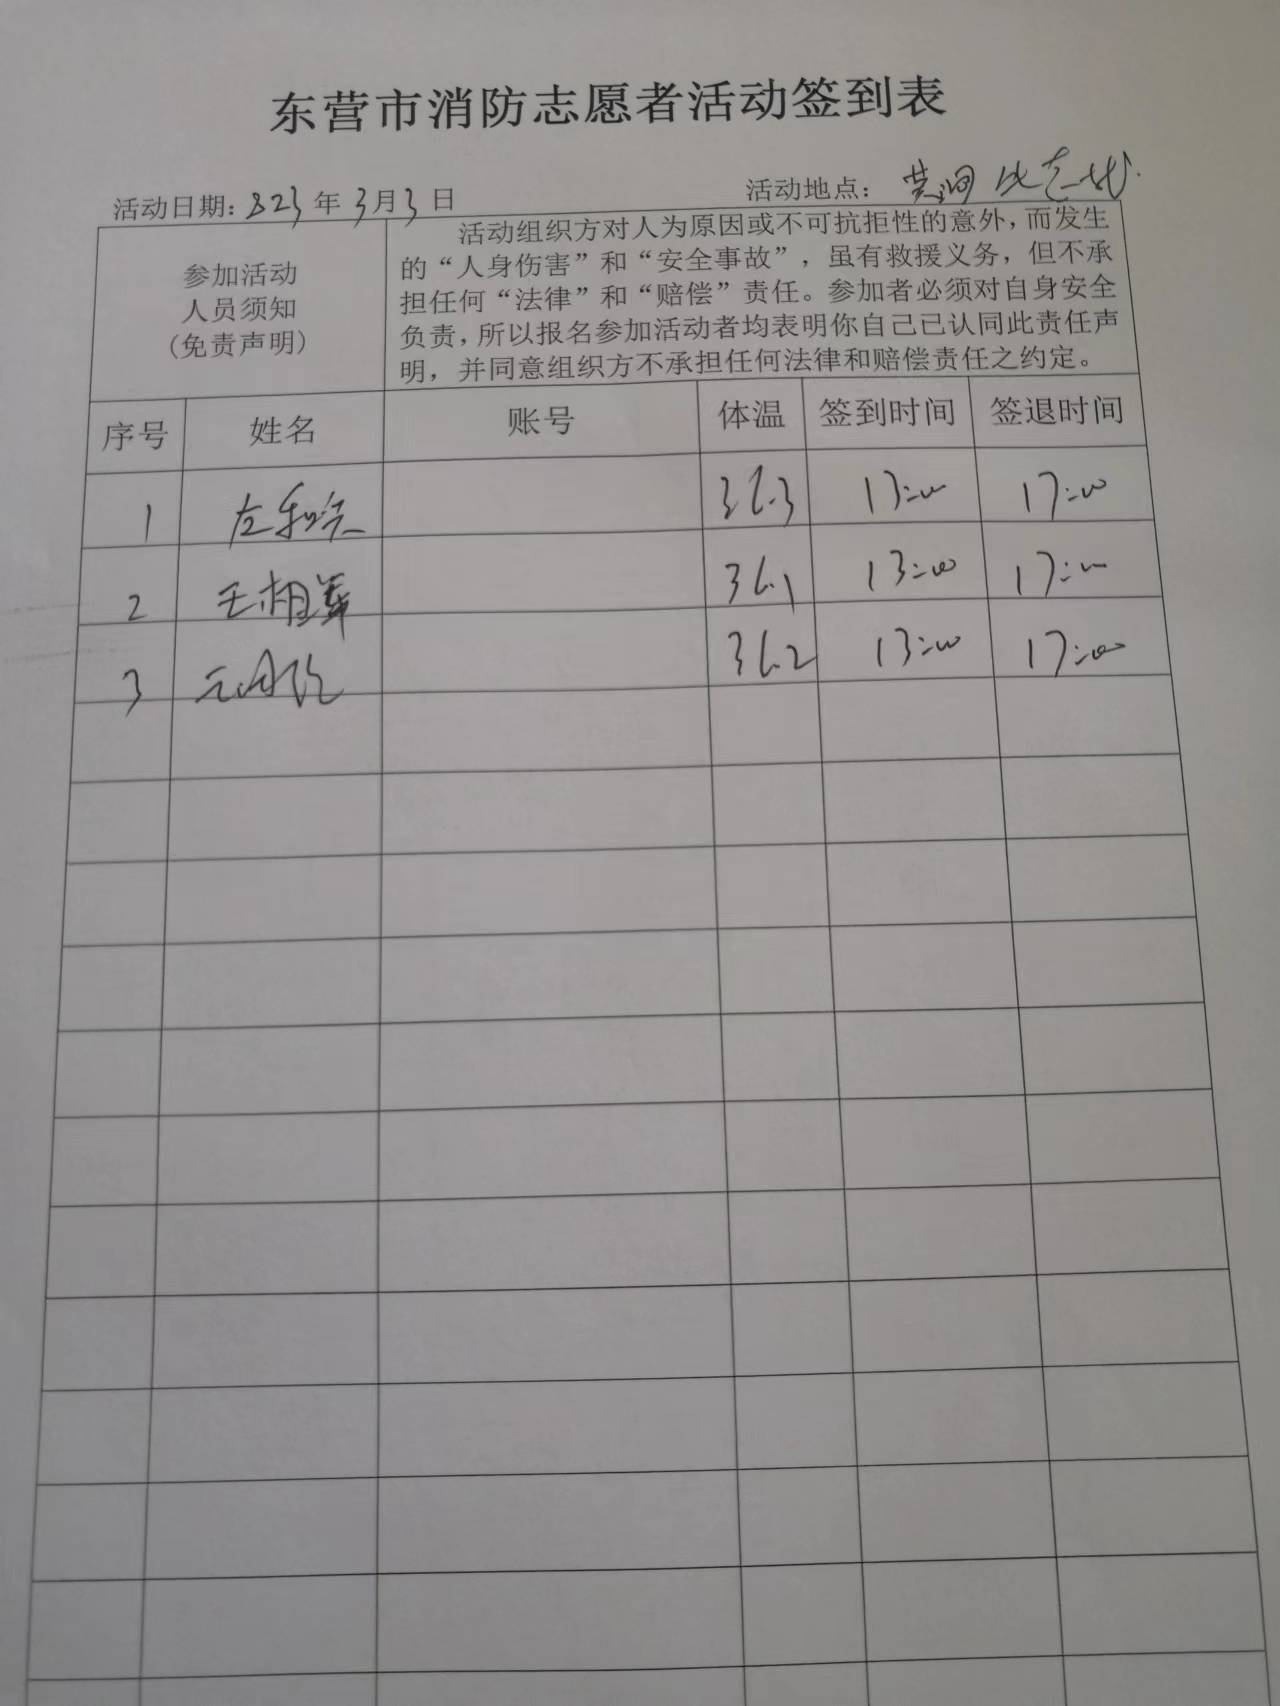 东营市消防志愿者活动签到表
活动日期: 323年3月3日 活动地点: 黄河
参加活动
人员须知
(免责声明)
活动组织方对人为原因或不可抗拒性的意外，而发生
的“人身伤害”和“安全事故”，虽有救援义务，但不承
担任何“法律”和“赔偿”责任。参加者必须对自身安全
负责，所以报名参加活动者均表明你自己已认同此责任声
明，并同意组织方不承担任何法律和赔偿责任之约定。
序号 姓名 账号 体温 签到时间 签退时间
1 36.3 13:00 17:00
2 王相军 36.1 13:00 17:00
3 36.2 13:00 17:00